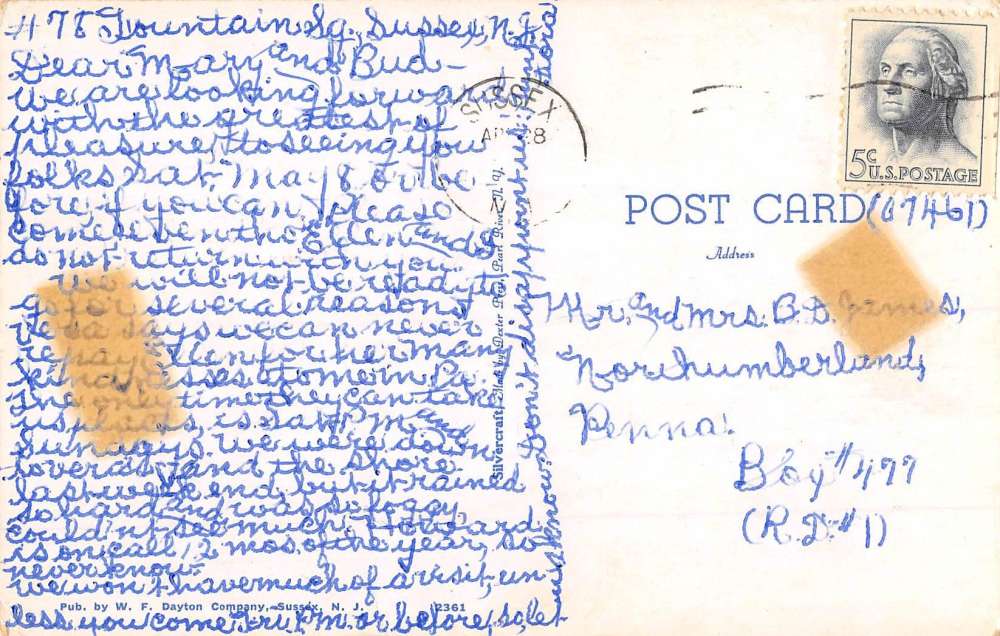 #78 Fountain Sq., Sussex, N.J.
Dear Mary and Bud-
we are looking forward
with the greatest of
pleasure, to seeing you
folks Sat. May 8 or be
fore, if you can, please
come, even tho Ellen and
do not return with you.
We will not be ready to
go for several reasons
Veva says we can never
repay Ellen for her many
kindnesses to me in Pa.
The only time they can take
us places, is Sat P.M. and
Sundays. We were down
over and the shore
last week end, but it rained
so hard and was so foggy
couldn't see much. Howard
is on call 12 mos. of the year, so
never know.
we won't have much of a visit, un-
less you come Fri P.M. or before, so let
us know. Don't disappoint us.
SUSSEX
AP 28
N.J.
5c
U.S. POSTAGE
POST CARD (07461)
Address
Mr. and Mrs. B. D. James,
Northumberland,
Penna.
Box #477
(R.D.#1)
Silvercraft, Made by Dexter Press, Pearl River, N. Y.
Pub. by W. F. Dayton Company, Sussex, N. J. 12361